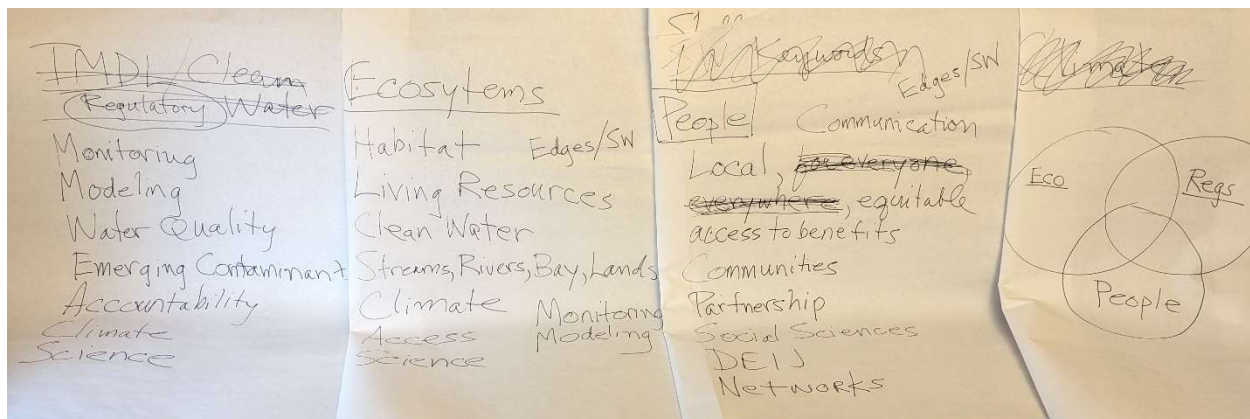 TMDL/Clean
Regulatory Water
Monitoring
Modeling
Water Quality
Emerging Contaminant
Accountability
Climate
Science
Ecosytems
Habitat Edges/SW
Living Resources
Clean Water
Streams, Rivers, Bay, Lands
Climate Monitoring
Access Modeling
Science
Keywords
Edges/SW
People Communication
Local, for everyone,
everywhere, equitable
access to benefits
Communities
Partnership
Social Sciences
DEIJ
Networks
Climate
Eco
Regs
People